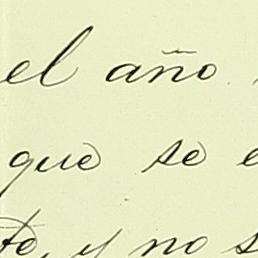 el año
que se
y no